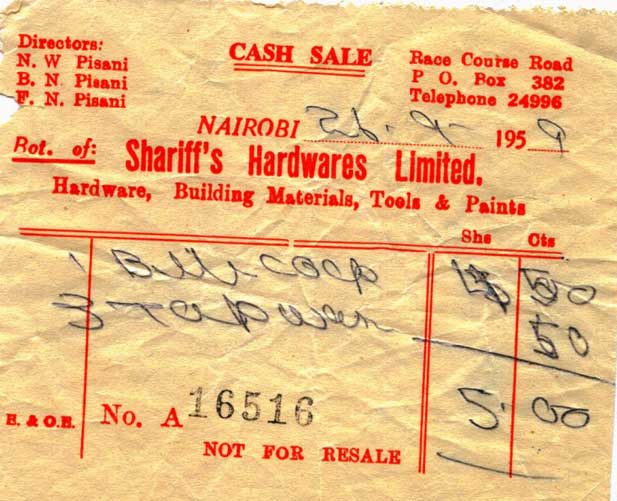 Directors:
N. W Pisani
B. N. Pisani
F. N. Pisani
CASH SALE
Race Course Road
P O. Box 382
Telephone 24996
NAIROBI 26 - 9 - 1959
Bot. of: Shariff's Hardwares Limited.
Hardware, Building Materials, Tools & Paints
Shs Cts
1
3 50
5. 00
E. & O.E. No. A 16516
NOT FOR RESALE